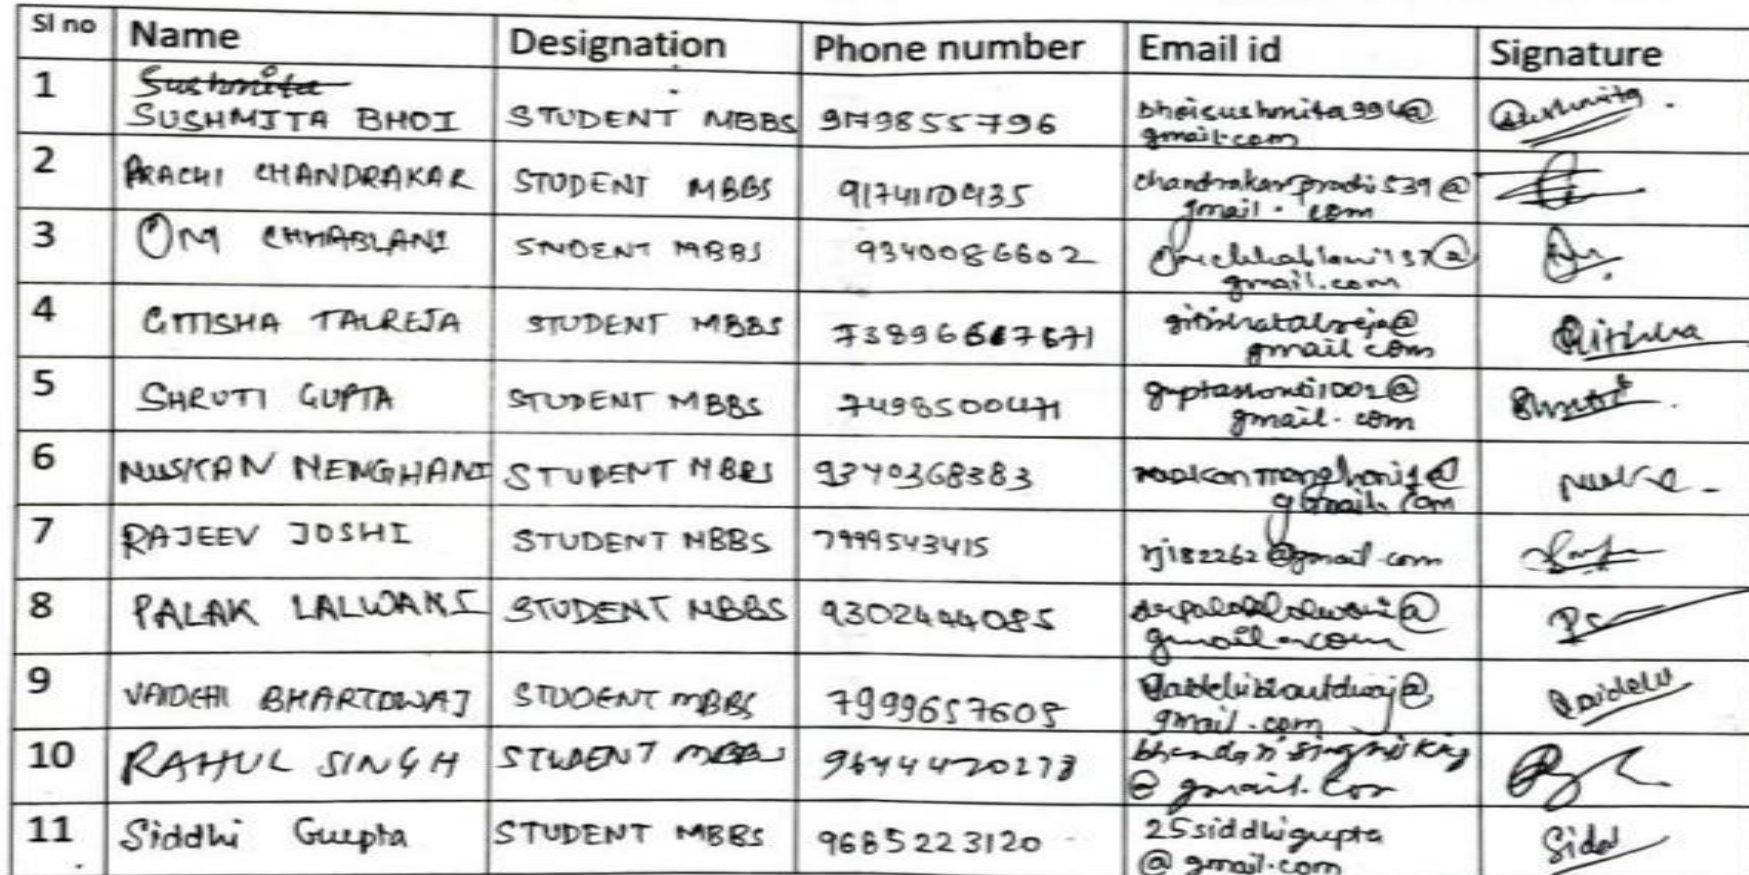 Sl no Name Designation Phone number Email id Signature
1 Sushmita
SUSHMITA BHOI STUDENT MBBS 9179855796 bhoisushmita994@
gmail.com
2 PRACHI CHANDRAKAR STUDENT MBBS 9174110435 chandrakarprachi539@
gmail.com
3 OM CHHABLANI STUDENT MBBS 9340086602
gmail.com
4 GITISHA TALREJA STUDENT MBBS gitishatalreja@
gmail com
5 SHRUTI GUPTA STUDENT MBBS 7498500471 guptashruti1002@
gmail.com
6 MUSKAN MENGHANI STUDENT MBBS 9340368383
gmail.com
7 RAJEEV JOSHI STUDENT MBBS 7999543415 rj182262@gmail.com
8 PALAK LALWANI STUDENT MBBS 9302444085
gmail.com
9 VAIDEHI BHARTDWAJ STUDENT MBBS 7999657605
gmail.com
10 RAHUL SINGH STUDENT MBBS
@gmail.com
11 Siddhi Guupta STUDENT MBBS 9685223120 25siddhigupta
@gmail.com